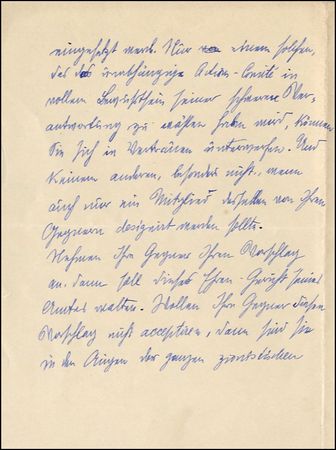 eingesetzt werd. Nur einem solchen,
das das unabhängige Action-Comité in
vollem Bewußtsein seiner schweren Ver-
antwortung zu wählen haben wird, können
Sie sich in Vertrauen unterwerfen. Und
keinem anderen, besonders nicht, wenn
auch nur ein Mitglied desselben von Ihren
Gegnern designirt werden sollte.
Nehmen Ihre Gegner Ihren Vorschlag
an, dann soll dieses Ehren-Gericht seines
Amtes walten. Wollen Ihre Gegner diesen
Vorschlag nicht acceptiren, dann sind sie
in den Augen der ganzen zionistischen